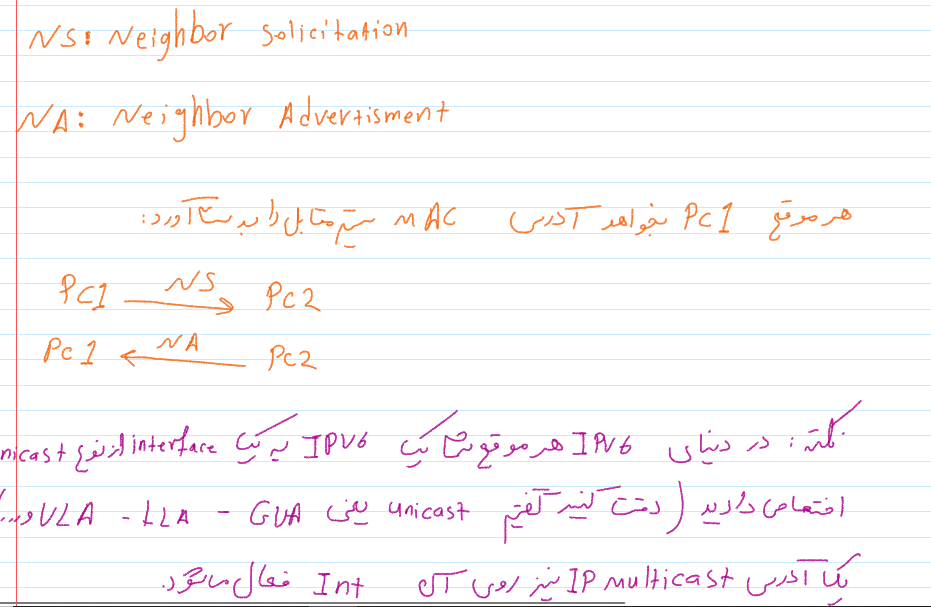 NS: Neighbor Solicitation
NA: Neighbor Advertisment
هر موقع PC1 بخواهد آدرس MAC سیستم مقابل را بدست آورد:
PC1 NS PC2
PC1 NA PC2
نکته: در دنیای IPV6 هر موقع شما یک IPV6 به یک interface از نوع nicast
اختصاص دادید (دقت کنید گفتیم unicast یعنی GUA - LLA - ULA و...)
یک آدرس IP multicast نیز روی آن Int فعال میشود.